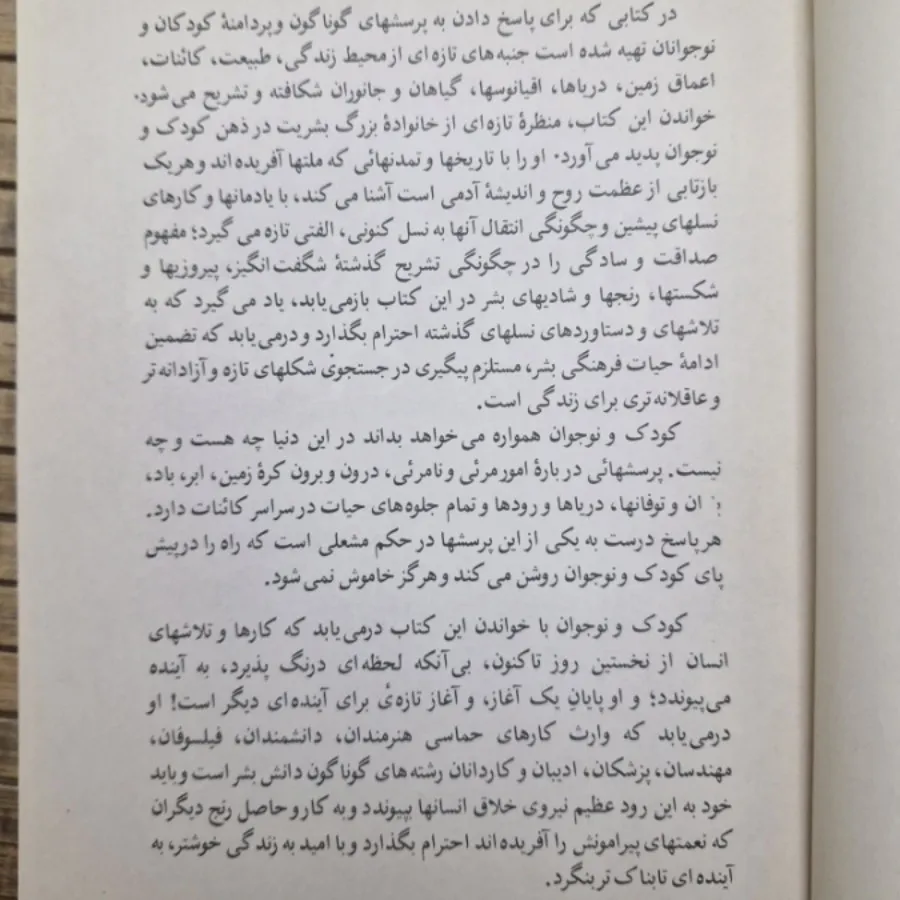 در کتابی که برای پاسخ دادن به پرسشهای گوناگون و پردامنهٔ کودکان و
نوجوانان تهیه شده است جنبه‌های تازه‌ای از محیط زندگی، طبیعت، کائنات،
اعماق زمین، دریاها، اقیانوسها، گیاهان و جانوران شکافته و تشریح می‌شود.
خواندن این کتاب، منظرهٔ تازه‌ای از خانوادهٔ بزرگ بشریت در ذهن کودک و
نوجوان پدید می‌آورد. او را با تاریخها و تمدنهائی که ملتها آفریده‌اند و هریک
بازتابی از عظمت روح و اندیشهٔ آدمی است آشنا می‌کند، با یادمانها و کارهای
نسلهای پیشین و چگونگی انتقال آنها به نسل کنونی، الفتی تازه می‌گیرد؛ مفهوم
صداقت و سادگی را در چگونگی تشریح گذشتهٔ شگفت‌انگیز، پیروزیها و
شکستها، رنجها و شادیهای بشر در این کتاب بازمی‌یابد، یاد می‌گیرد که به
تلاشهای و دستاوردهای نسلهای گذشته احترام بگذارد و درمی‌یابد که تضمین
ادامهٔ حیات فرهنگی بشر، مستلزم پیگیری در جستجوی شکلهای تازه و آزادانه‌تر
و عاقلانه‌تری برای زندگی است.
کودک و نوجوان همواره می‌خواهد بداند در این دنیا چه هست و چه
نیست. پرسشهائی دربارهٔ امور مرئی و نامرئی، درون و برون کرهٔ زمین، ابر، باد،
و توفانها، دریاها و رودها و تمام جلوه‌های حیات در سراسر کائنات دارد.
هر پاسخ درست به یکی از این پرسشها در حکم مشعلی است که راه را درپیش
پای کودک و نوجوان روشن می‌کند و هرگز خاموش نمی‌شود.
کودک و نوجوان با خواندن این کتاب درمی‌یابد که کارها و تلاشهای
انسان از نخستین روز تاکنون، بی‌آنکه لحظه‌ای درنگ پذیرد، به آینده
می‌پیوندد؛ و او پایانِ یک آغاز، و آغاز تازه‌یٔ برای آینده‌ای دیگر است! او
درمی‌یابد که وارث کارهای حماسی هنرمندان، دانشمندان، فیلسوفان،
مهندسان، پزشکان، ادیبان و کاردانان رشته‌های گوناگون دانش بشر است و باید
خود به این رود عظیم نیروی خلاق انسانها بپیوندد و به کار و حاصل رنج دیگران
که نعمتهای پیرامونش را آفریده‌اند احترام بگذارد و با امید به زندگی خوشتر، به
آینده‌ای تابناک تر بنگرد.